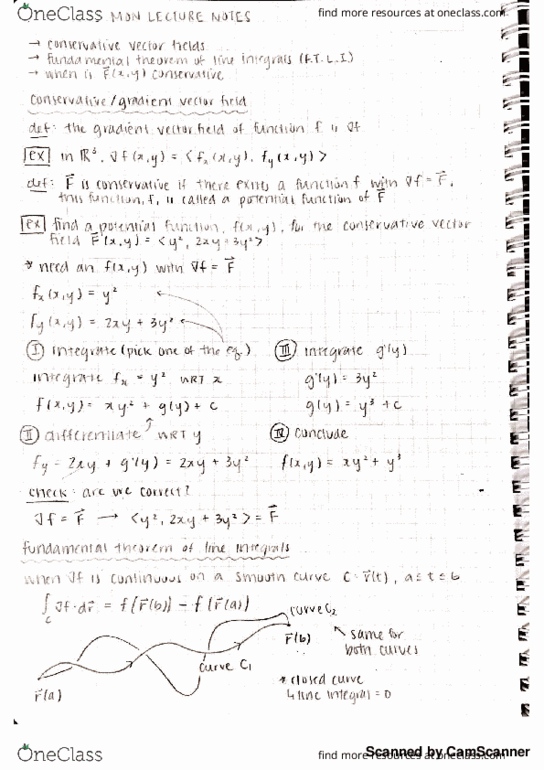 OneClass MON LECTURE NOTES find more resources at oneclass.com
→ conservative vector fields
→ fundamental theorem of line integrals (F.T.L.I)
→ when is F⃗(x,y) conservative
conservative/gradient vector field
def: the gradient vector field of function f is ∇f
ex in ℝ³, ∇f(x,y) = <fx(x,y), fy(x,y)>
def: F⃗ is conservative if there exists a function f with ∇f = F⃗,
this function, f, is called a potential function of F⃗
ex find a potential function, f(x,y), for the conservative vector
field F⃗(x,y) = <y², 2xy + 3y²>
* need an f(x,y) with ∇f = F⃗
fx(x,y) = y²
fy(x,y) = 2xy + 3y²
I integrate (pick one of the eq.)
integrate fx = y² WRT x
f(x,y) = xy² + g(y) + c
II differentiate WRT y
fy = 2xy + g'(y) = 2xy + 3y²
III integrate g'(y)
g'(y) = 3y²
g(y) = y³ + c
IV conclude
f(x,y) = xy² + y³
check: are we correct?
∇f = F⃗ → <y², 2xy + 3y²> = F⃗
fundamental theorem of line integrals
when ∇f is continuous on a smooth curve C: r⃗(t), a≤t≤b
∫C ∇f·dr⃗ = f(r⃗(b)) - f(r⃗(a))
curve C₂
r⃗(b)
same for
both curves
curve C₁
r⃗(a)
* closed curve
↳ line integral = 0
OneClass find more resources at oneclass.com
Scanned by CamScanner